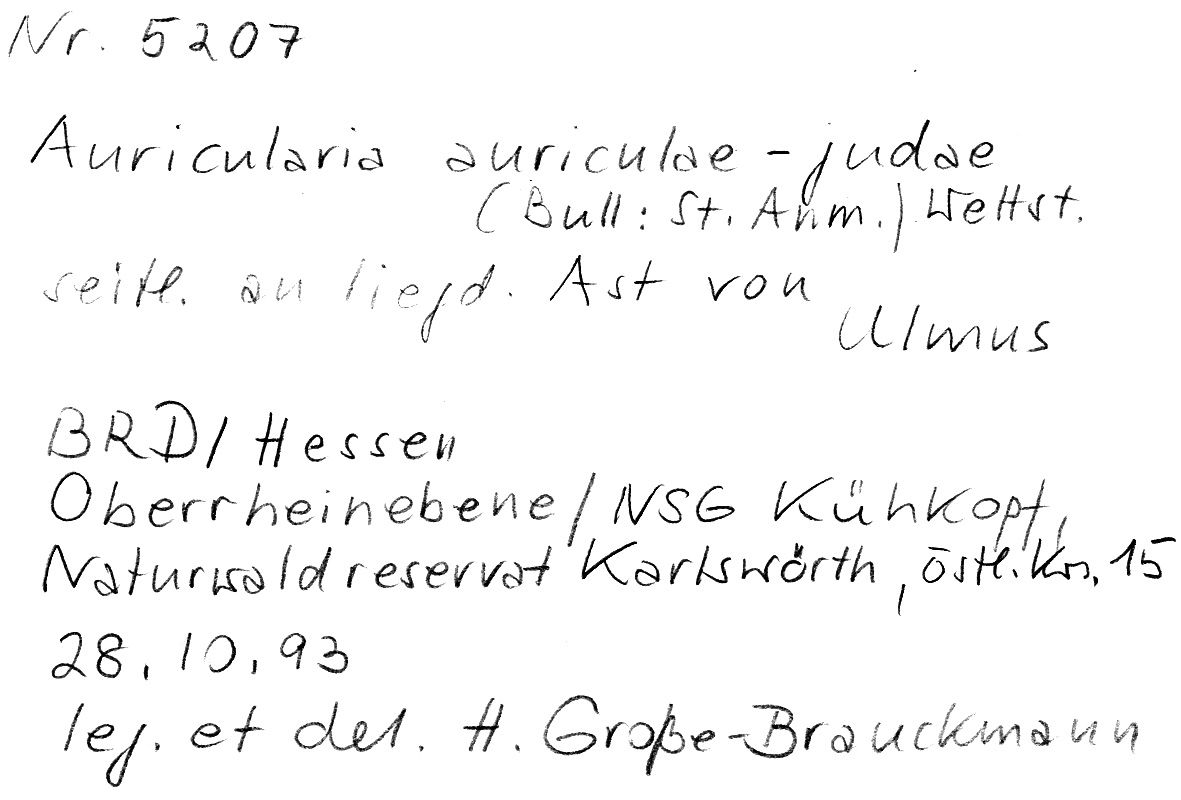 Nr. 5207
Auricularia auriculae-judae
(Bull: St. Anm.) Wettst.
seitl. an liegd. Ast von
Ulmus
BRD/Hessen
Oberrheinebene/NSG Kühkopf,
Naturwaldreservat Karlswörth, östl. Km. 15
28.10.93
leg. et det. H. Große-Brauckmann